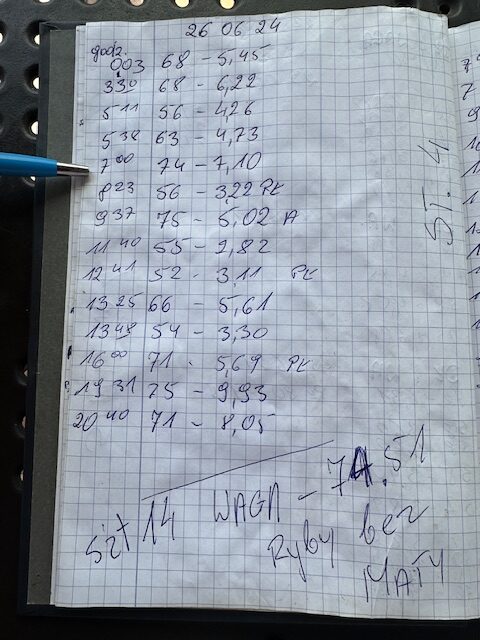 26 06 24
godz.
003 68 - 5,45
330 68 - 6,22
511 56 - 4,26
538 63 - 4,73
700 74 - 7,10
823 56 - 3,22 PK
937 75 - 5,02 A
1140 55 - 2,82
1241 52 - 3,11 PK
1325 66 - 5,61
1348 54 - 3,30
1600 71 - 5,69 PK
1931 75 - 9,93
2040 71 - 8,05
Szt 14 WAGA - 74.51
Ryby bez
MATY
ST. 4